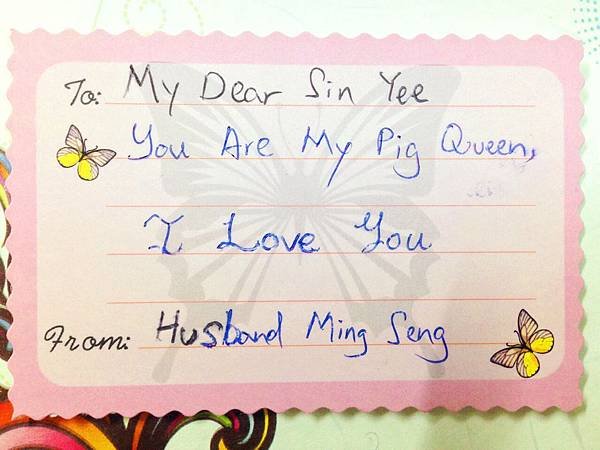 To: My Dear Sin Yee
You Are My Pig Queen,
I Love You
From: Husband Ming Seng